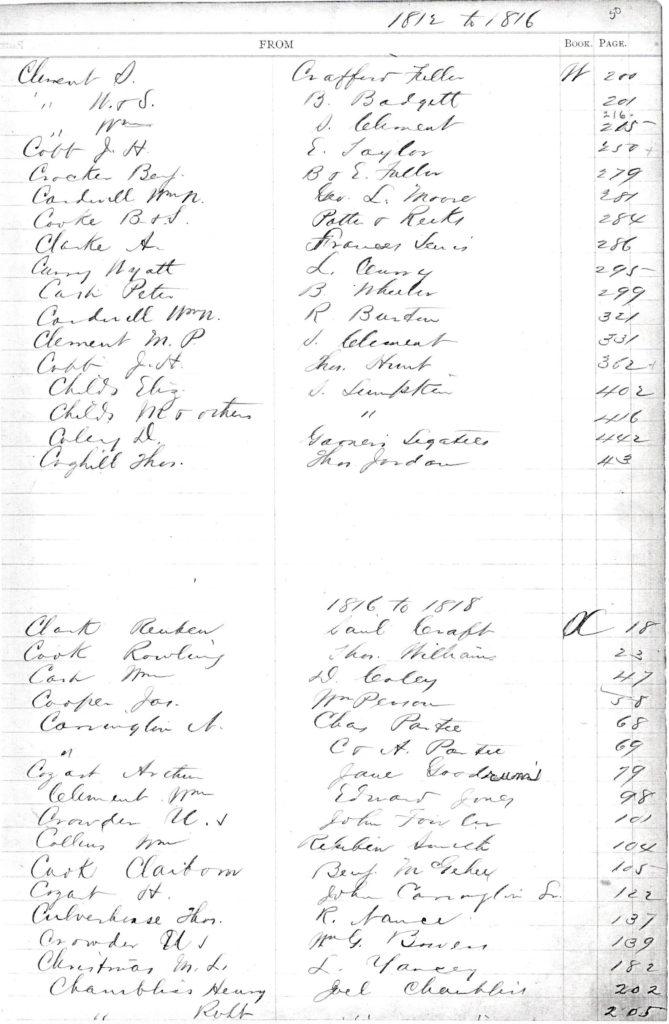 1812 to 1816 50
FROM BOOK. PAGE.
Clement S. Crafford Fuller W 200
" W. & S. B. Badgett 201
216
" Wm S. Clement 215
Cobb J. H. E. Taylor 250
Crocker Benj. B & E. Fuller 279
Cardwell Wm N. Geo. L. Moore 281
Cooke B & S. Potter & Reeks 284
Clarke A. Frances Lewis 286
Curry Wyatt L. Curry 295
Cash Peter B Wheeler 299
Cardwell Wm N. R Burton 321
Clement M. P S. Clement 331
Cobb J. H. Thos. Hunt 362
Childs Eliz. J. Lumpkin 402
Childs M & others " 416
Coley D. Garner Legatees 442
Coghill Thos. Thos Jordan 43
1816 to 1818
Clark Reuben Saml Craft X 18
Cook Rowling Thos. Williams 23
Cash Wm D. Coley 47
Cooper Jas. Wm Person 58
Carrington N. Chas Partee 68
" Co A. Partee 69
Cozart Arthur Jane Goodrum's 79
Clement Wm Edward Jones 98
Crowder U. S John Fowler 101
Collins Wm Reuben Smith 104
Cook Claiborn Benj McGehee 105
Cozart H. John Carrington Sr. 122
Culverhouse Thos. R. Nance 137
Crowder U S Wm G. Bowers 139
Christmas M. L. L. Yancey 182
Chambliss Henry Joel Chambliss 202
" Robt " " 205